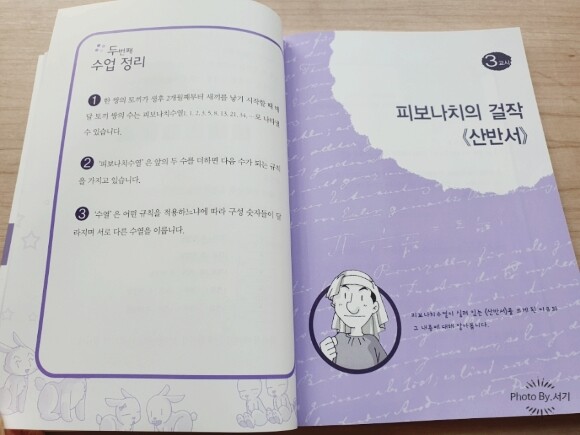 두번째
수업 정리
1 한 쌍의 토끼가 생후 2개월째부터 새끼를 낳기 시작할 때 매
달 토끼 쌍의 수는 피보나치수열1, 1, 2, 3, 5, 8, 13, 21, 34, …로 나타낼
수 있습니다.
2 '피보나치수열'은 앞의 두 수를 더하면 다음 수가 되는 규칙
을 가지고 있습니다.
3 '수열'은 어떤 규칙을 적용하느냐에 따라 구성 숫자들이 달
라지며 서로 다른 수열을 이룹니다.
3교시
피보나치의 걸작
《산반서》
피보나치수열이 실려 있는 《산반서》를 쓰게 된 이유와
그 내용에 대해 알아봅니다.
Photo By.서기